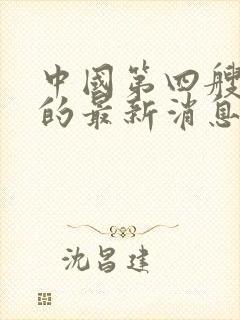 中國第四艘
的最新消息
沈昌建